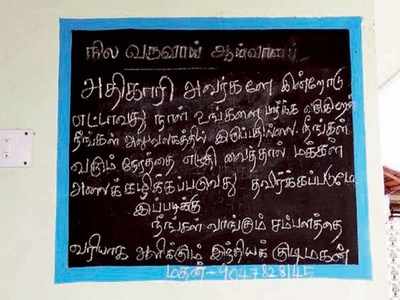 நில வருவாய் ஆய்வாளர்
அதிகாரி அவர்களே இன்றோடு
எட்டாவது நாள் உங்களை பார்க்க வருகிறேன்
நீங்கள் அலுவலகத்தில் இருப்பதில்லை. நீங்கள்
வரும் நேரத்தை எழுதி வைத்தால் மக்கள்
அலைக்கழிக்கப்படுவது தவிர்க்கப்படுமே
இப்படிக்கு
நீங்கள் வாங்கும் சம்பளத்தை
வரியாக அளிக்கும் இந்தியக் குடிமகன்
மதன் - 9047828145